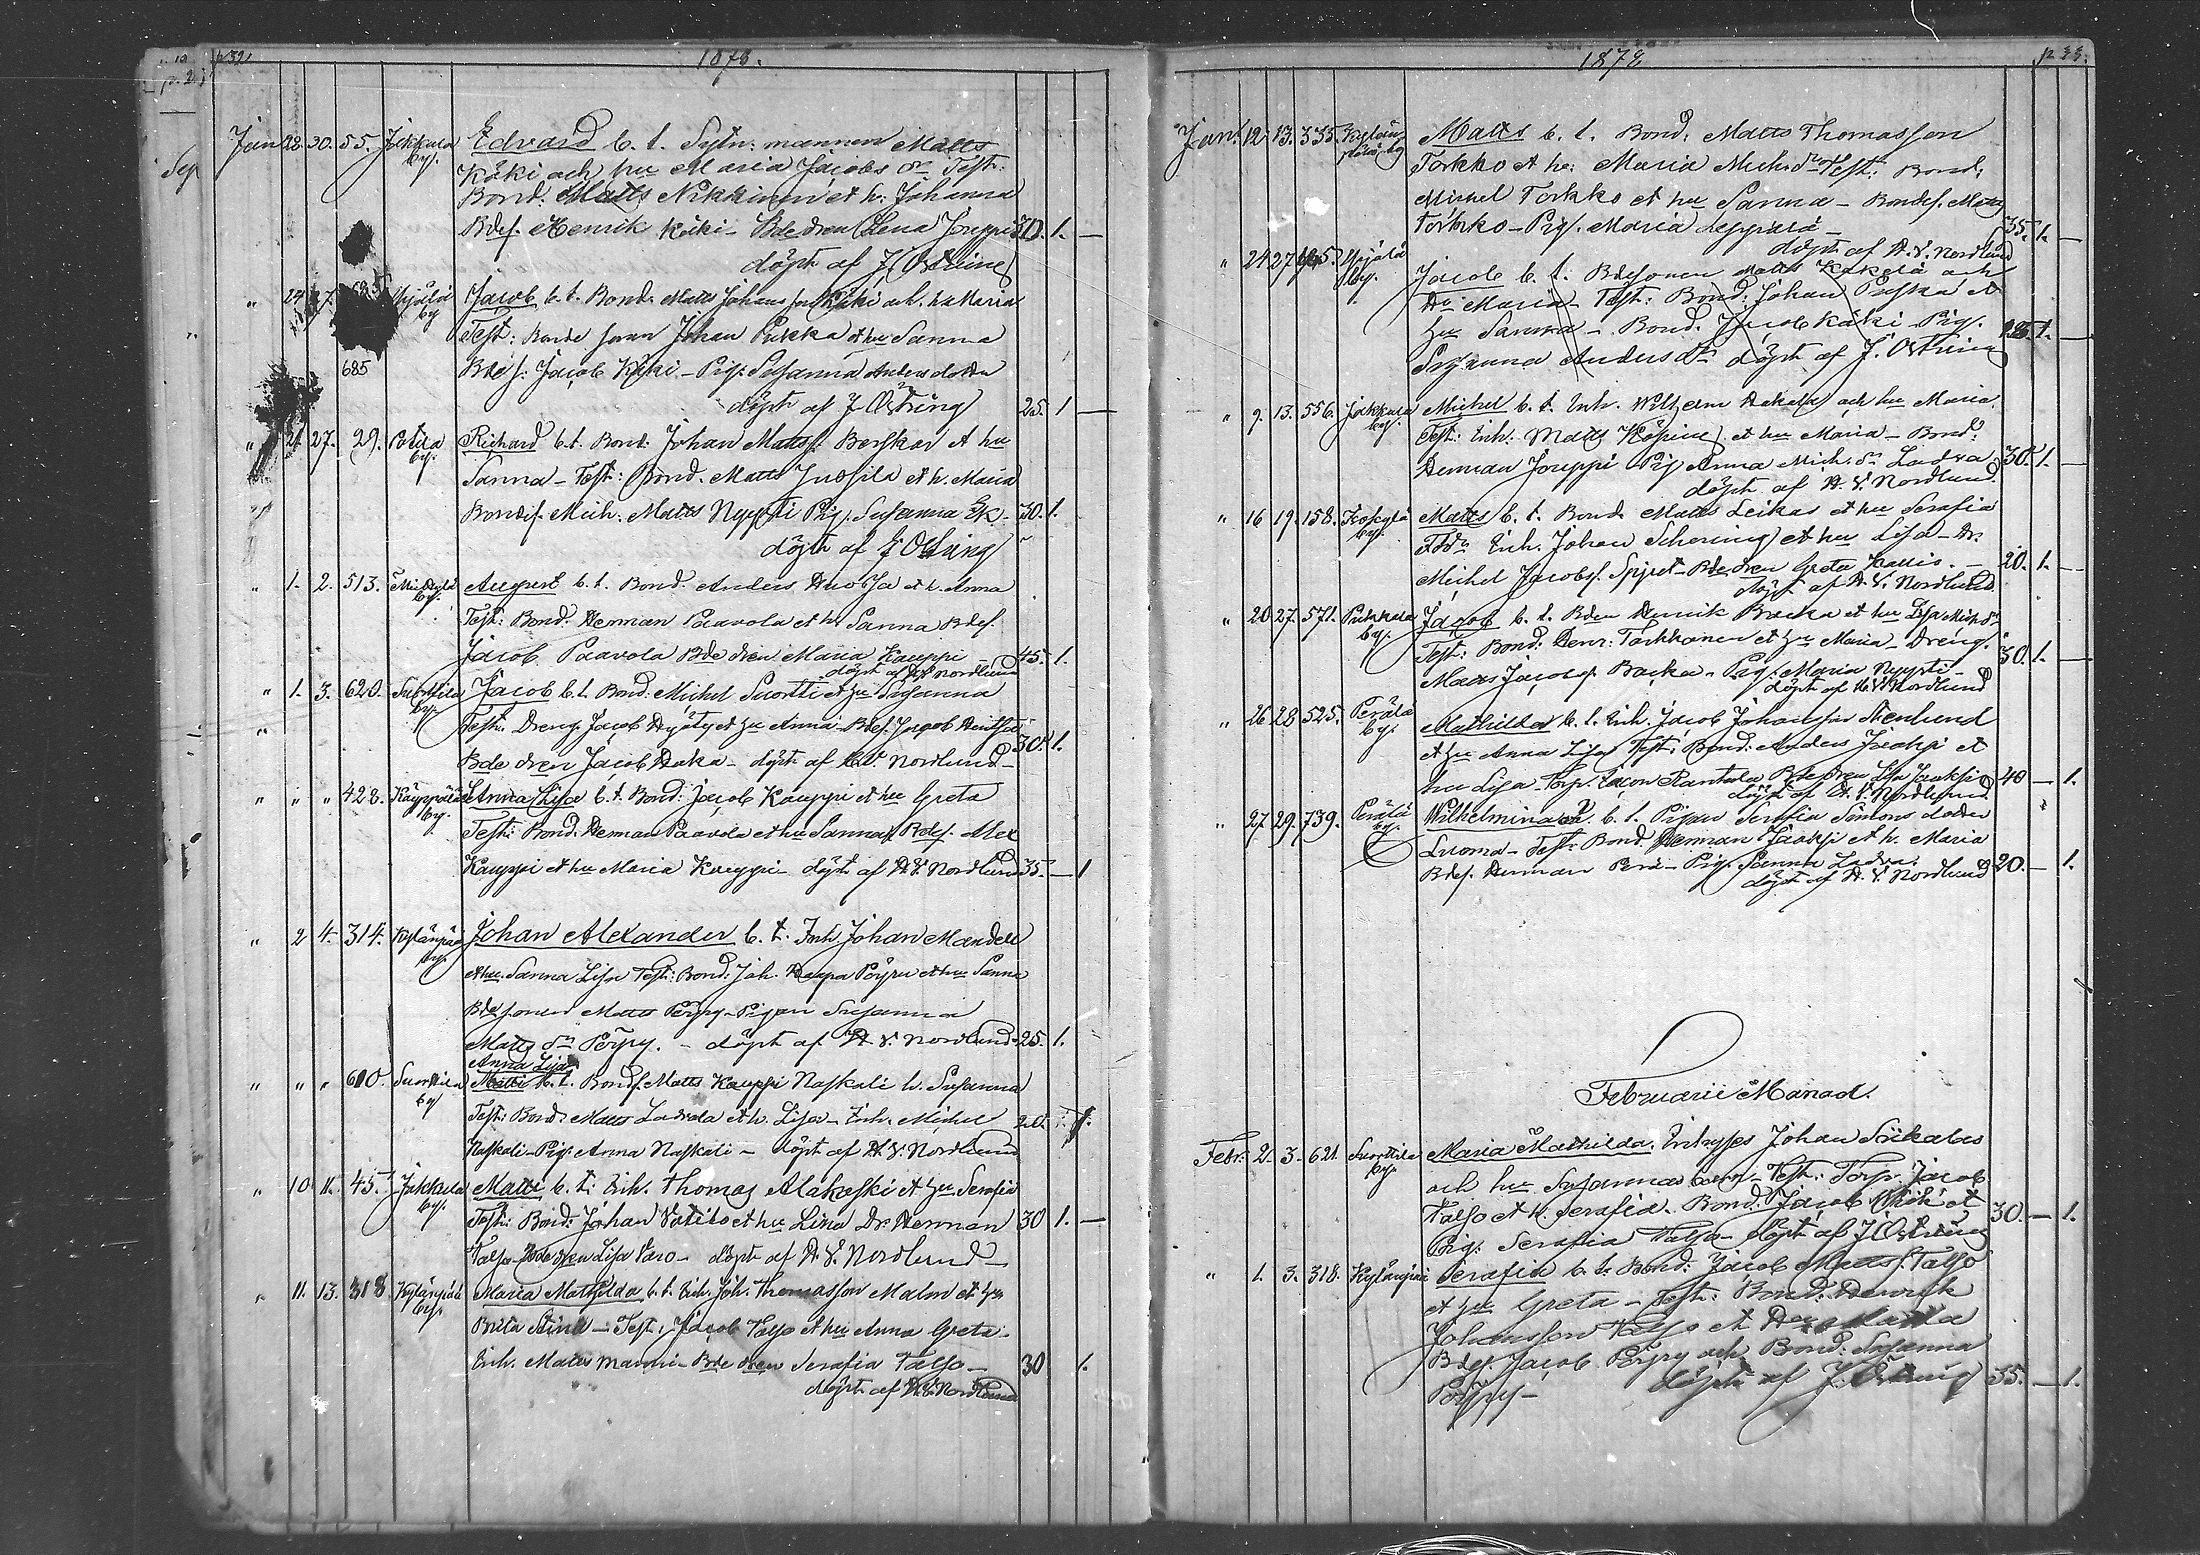 p 32
1878.
Jan 22. 30. 55. Jåkkula by. Edvard b. t. Sytn: mannen Matts
Käki och hu Maria Jacobs dr Test:
Bond: Matts Nikkinen et h: Johanna
Bdes. Henrik Käki - Bdedren Lena Jouppi 30. 1. —
döpt af J Östring
" 24 27. by Jacob b. t. Bond. Matts Johans son Käki och hu Maria
Test: Bonde sonen Johan Pukka et hu Sanna
685 Bdes: Jacob Käki - Pig: Susanna Anders dotter
döpt af J Östring 25. 1 —
" 21. 27. 29. Potila by. Richard b. t. Bond: Johan Mattss. et hu
Sanna - Test: Bond. Matts Jussila et h. Maria
Bondes. Mich. Matts Nyysti Pig. Susanna 30. 1.
döpt af J Östring
" 1. 2. 513. by. August b. t. Bond. Anders et h. Anna
Test: Bond. Herman Paavola et h. Sanna Bdes.
Jacob Paavola Bdedren Maria Kauppi — 45. 1.
döpt af H.V. Nordlund
" 1. 3. 620. Suorttila by. Jacob b. t. Bond: Michel Suortti et hu Susanna
Test: Dreng. Jacob et hu Anna - Bdes. Jacob
Bdedren Jacob Haka - döpt af H.V. Nordlund — 30. 1.
" " " 428. Kauppila by. Anna Lisa b. t. Bond: Jacob Kauppi et hu Greta
Test: Bond. Herman Paavola et hu Sanna Bdes. Alex
Kauppi et hu Maria Kauppi - döpt af H.V. Nordlund 35. — 1
" 2 4. 314. Kylänpää by. Johan Alexander b. t. Inh Johan Mandell
et hu. Sanna Lisa Test: Bond: Joh. Pöyry et hu Sanna
Bdesonen Matts Pöyry - Pigan Susanna
Matts dr Pöyry. - döpt af H.V. Nordlund - 25. 1.
Anna Lisa
" " " 610. Suorttila by Matti b. t. Bonds. Matts Kauppi Naskali h. Susanna
Test: Bond. Matts Ladvala et h. Lisa - Inh. Michel 20. 1.
Naskali - Pig: Anna Naskali - döpt af H.V. Nordlund
" 10. 11. 45. Jåkkula by. Matti b. t. Inh. Thomas Alakoski et hu Serafia
Test: Bond: Johan et hu Lisa Dr. Herman 30 1. —
Talso - Bdedren Lisa - döpt af H.V. Nordlund —
" 11. 13. 318 Kylänpää by. Maria Mathilda b. t. Inh. Joh. Thomasson Malm et hu
Brita Stina - Test: Jacob Talso et hu Anna Greta -
Inh. Matts Manni - Bdedren Serafia Talso - 30 1.
döpt af H.V. Nordlund
1878
p 33.
Jan. 12. 13. 335. Kylänpää by Matts b. t. Bond: Matts Thomasson
Torkko et hu: Maria Mich. dr Test: Bond:
Michel Torkko et hu Sanna - Bondes. Matts
Torkko - Pig. Maria Leppälä — 35. 1. —
döpt af H.V. Nordlund
" 24 27 by. Jacob b. t. Bdesonen Matts Käkelä och
Hu Maria - Test: Bond: Johan Puska et
hu Sanna - Bond. Jacob Käki - Pig. 1. —
Susanna Anders dr döpt af J. Östring
" 9. 13. 556. Jåkkula by. Michel b. t. Inh. Wilhelm och hu Maria.
Test: Inh. Matts et hu Maria - Bond:
Herman Jouppi - Pig Anna Mich. dr Ladva 30. 1. —
döpt af H.V. Nordlund.
" 16 19. 158. by. Matts b. t. Bond. Matts Leikas et hu Serafia
Inh. Johan Schering et hu Lisa - Dr.
Michel Jacobss. - Bdedren Greta Kallio. — 20. 1. —
döpt af H.V. Nordlund.
" 20 27. 571. Pukkala by. Jacob b. t. Bden Henrik Backa et hu Lisa Mich dr
Test: Bond. Henr: Tarkkanen et hu Maria - Dreng. 30. 1. —
Matts Jacobss. Backa - Pig. Maria Nyysti -
döpt af H.V. Nordlund
" 26 28 525. Perälä by. Mathilda b. t. Inh. Jacob Johansson Stenlund
et hu Anna Lisa Test: Bond: Anders Jaaksi et
hu Lisa - Torp. Rantala Bdedren Lisa Jaaksi 40 — 1.
döpt af H.V. Nordlund
" 27. 29. 739. Perälä by. Wilhelmina b. t. Pigan Serafia Simons dotter
Luoma - Test: Bond. Herman Jaaksi et h. Maria
Bdes. Herman Perä - Pig. Sanna Ladva. 20. — 1.
döpt af H.V. Nordlund
Februarii Månad.
Febr. 2. 3. 621. Suorttila by. Maria Mathilda, Inhysses Johan Siikalas
och hu Susannas barn - Test: Torp. Jacob
Talso et h. Serafia - Bond: Jacob et 30. — 1.
Pig: Serafia Talso - döpt af J Östring
" 1. 3. 318. Kylänpää Serafia b. t. Bond: Jacob Mattss. Talso
et hu Greta - Test: Bond: Henrik
Johansson Talso et Hu Maria
Bdes. Jacob Pöyry och Bond: Susanna
Pöyry - döpt af J. Östring 35. — 1.